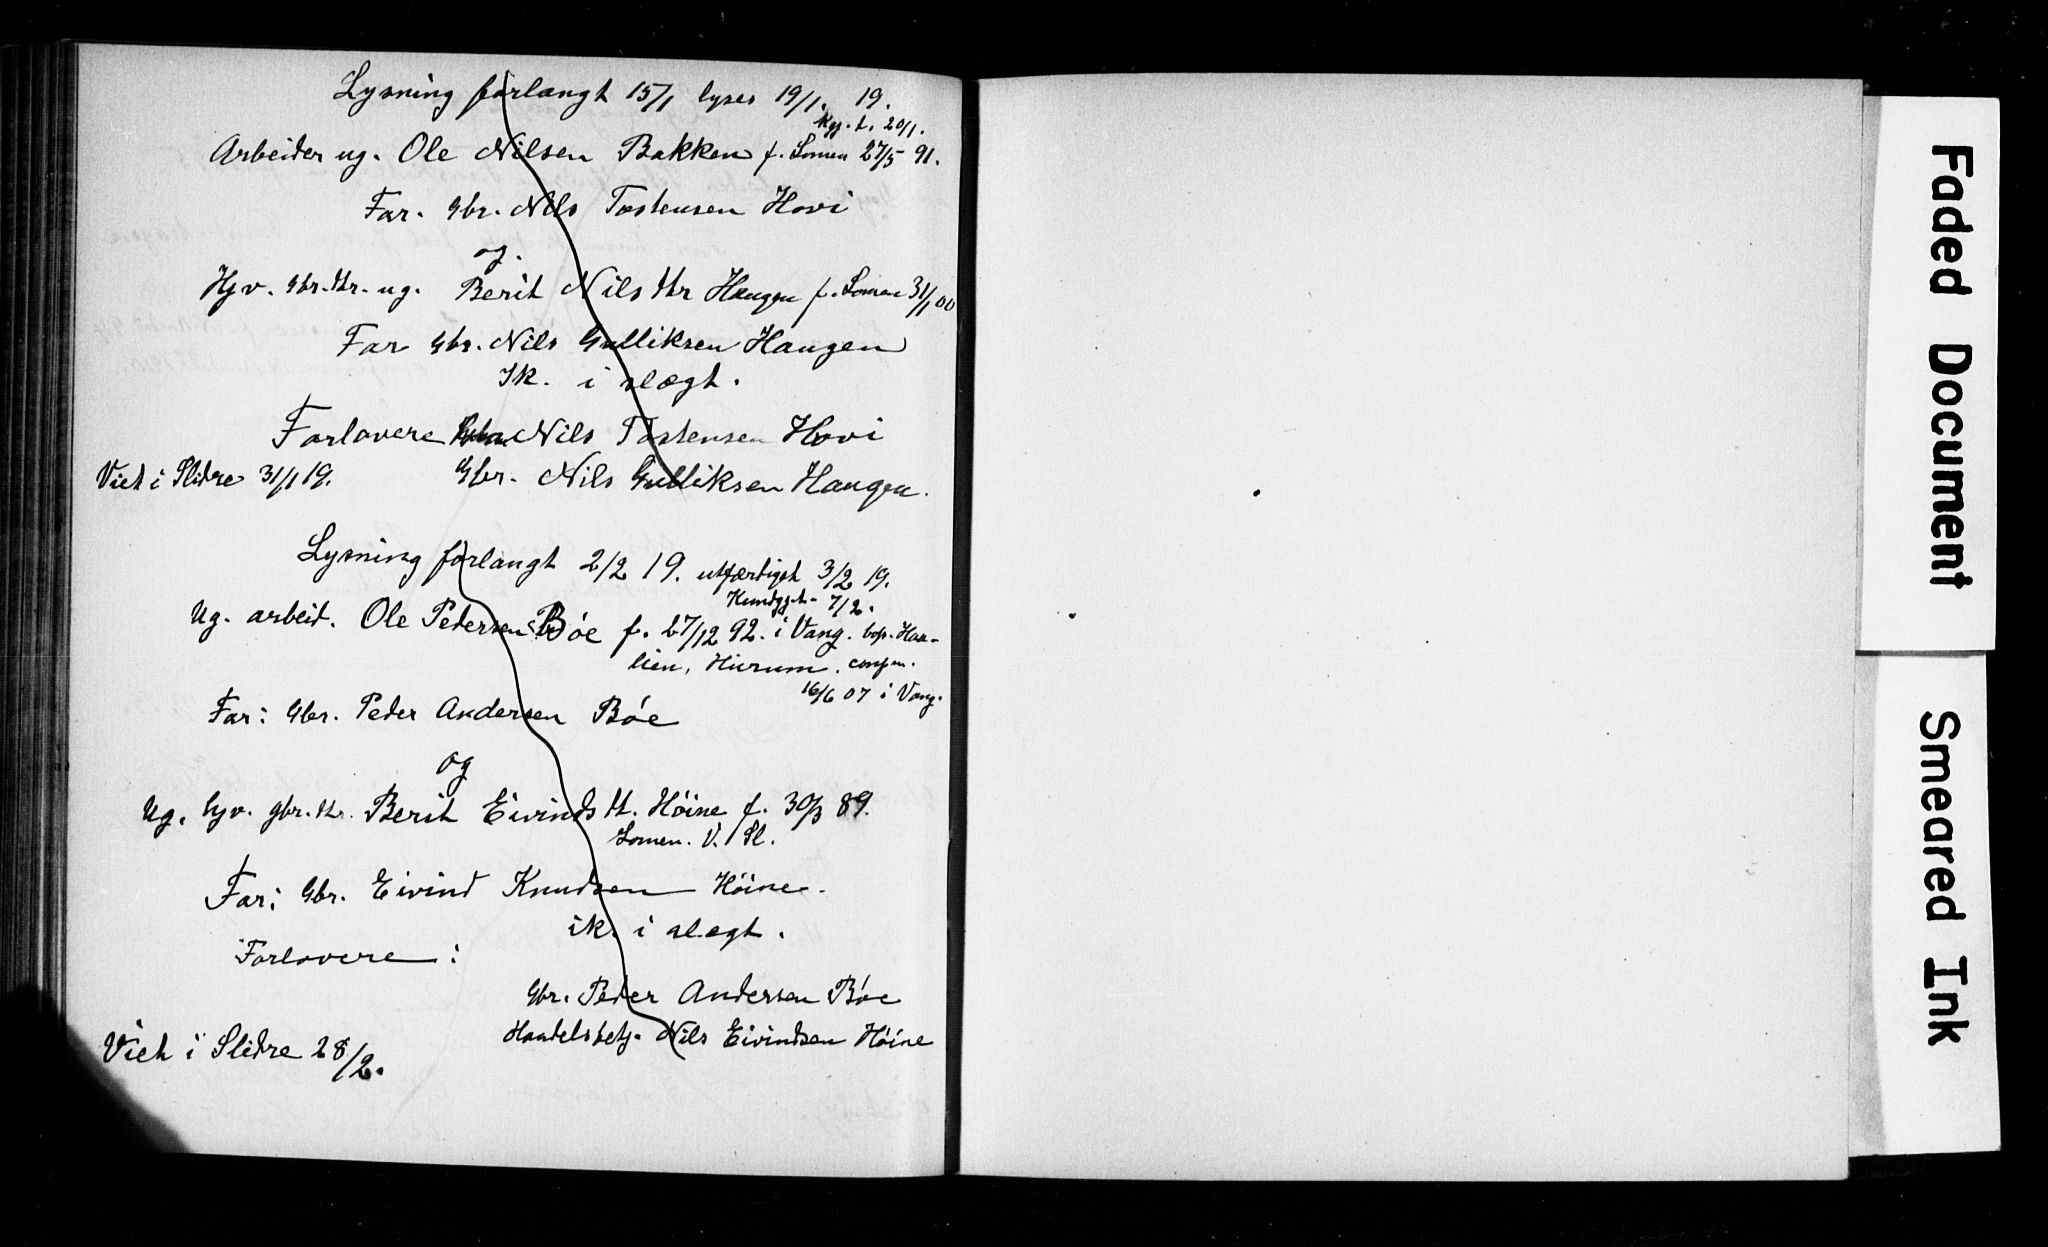 Lysning forlangt 15/1 lyses 19/1. 19.
Kgj. t. 20/1.
Arbeider ug. Ole Nilsen Bakken f. Lomen 27/5 91.
Far. Gbr. Nils Tostensen Hovi
og.
Hjv. Gbr.dtr. ug. Berit Nilsdtr Haugen f. Lomen 31/1 00
Far Gbr. Nils Gulliksen Haugen
Ik. i slægt.
Forlovere Nils Tostensen Hovi
Viet i Slidre 31/1 19. Gbr. Nils Gulliksen Haugen.
Lysning forlangt 2/2 19. utfærdiget 3/2 19.
Kundgj.t. 7/2.
Ug. arbeid. Ole Pedersen Bøe f. 27/12 92. i Vang. bop. Haa-
lien, Hurum. confm.
16/6 07 i Vang.
Far: Gbr. Peder Andersen Bøe
og
Ug. hjv. gbr.dtr. Berit Eivindsdt. Höine f. 30/3 89.
Lomen. V. Sl.
Far: Gbr. Eivind Knudsen Höine.
ik. i slegt.
Forlovere:
Gbr. Peder Andersen Bøe
Handelsbetj. Nils Eivindsen Höine
Viet i Slidre 28/2.
Faded Document
Smeared Ink